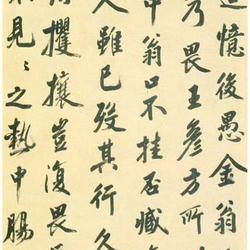 追憶後愚金翁
乃畏王彥方所
中翁口不挂否臧
人雖已歿其行久
攫攘豈復畏
見〻之熱中腸